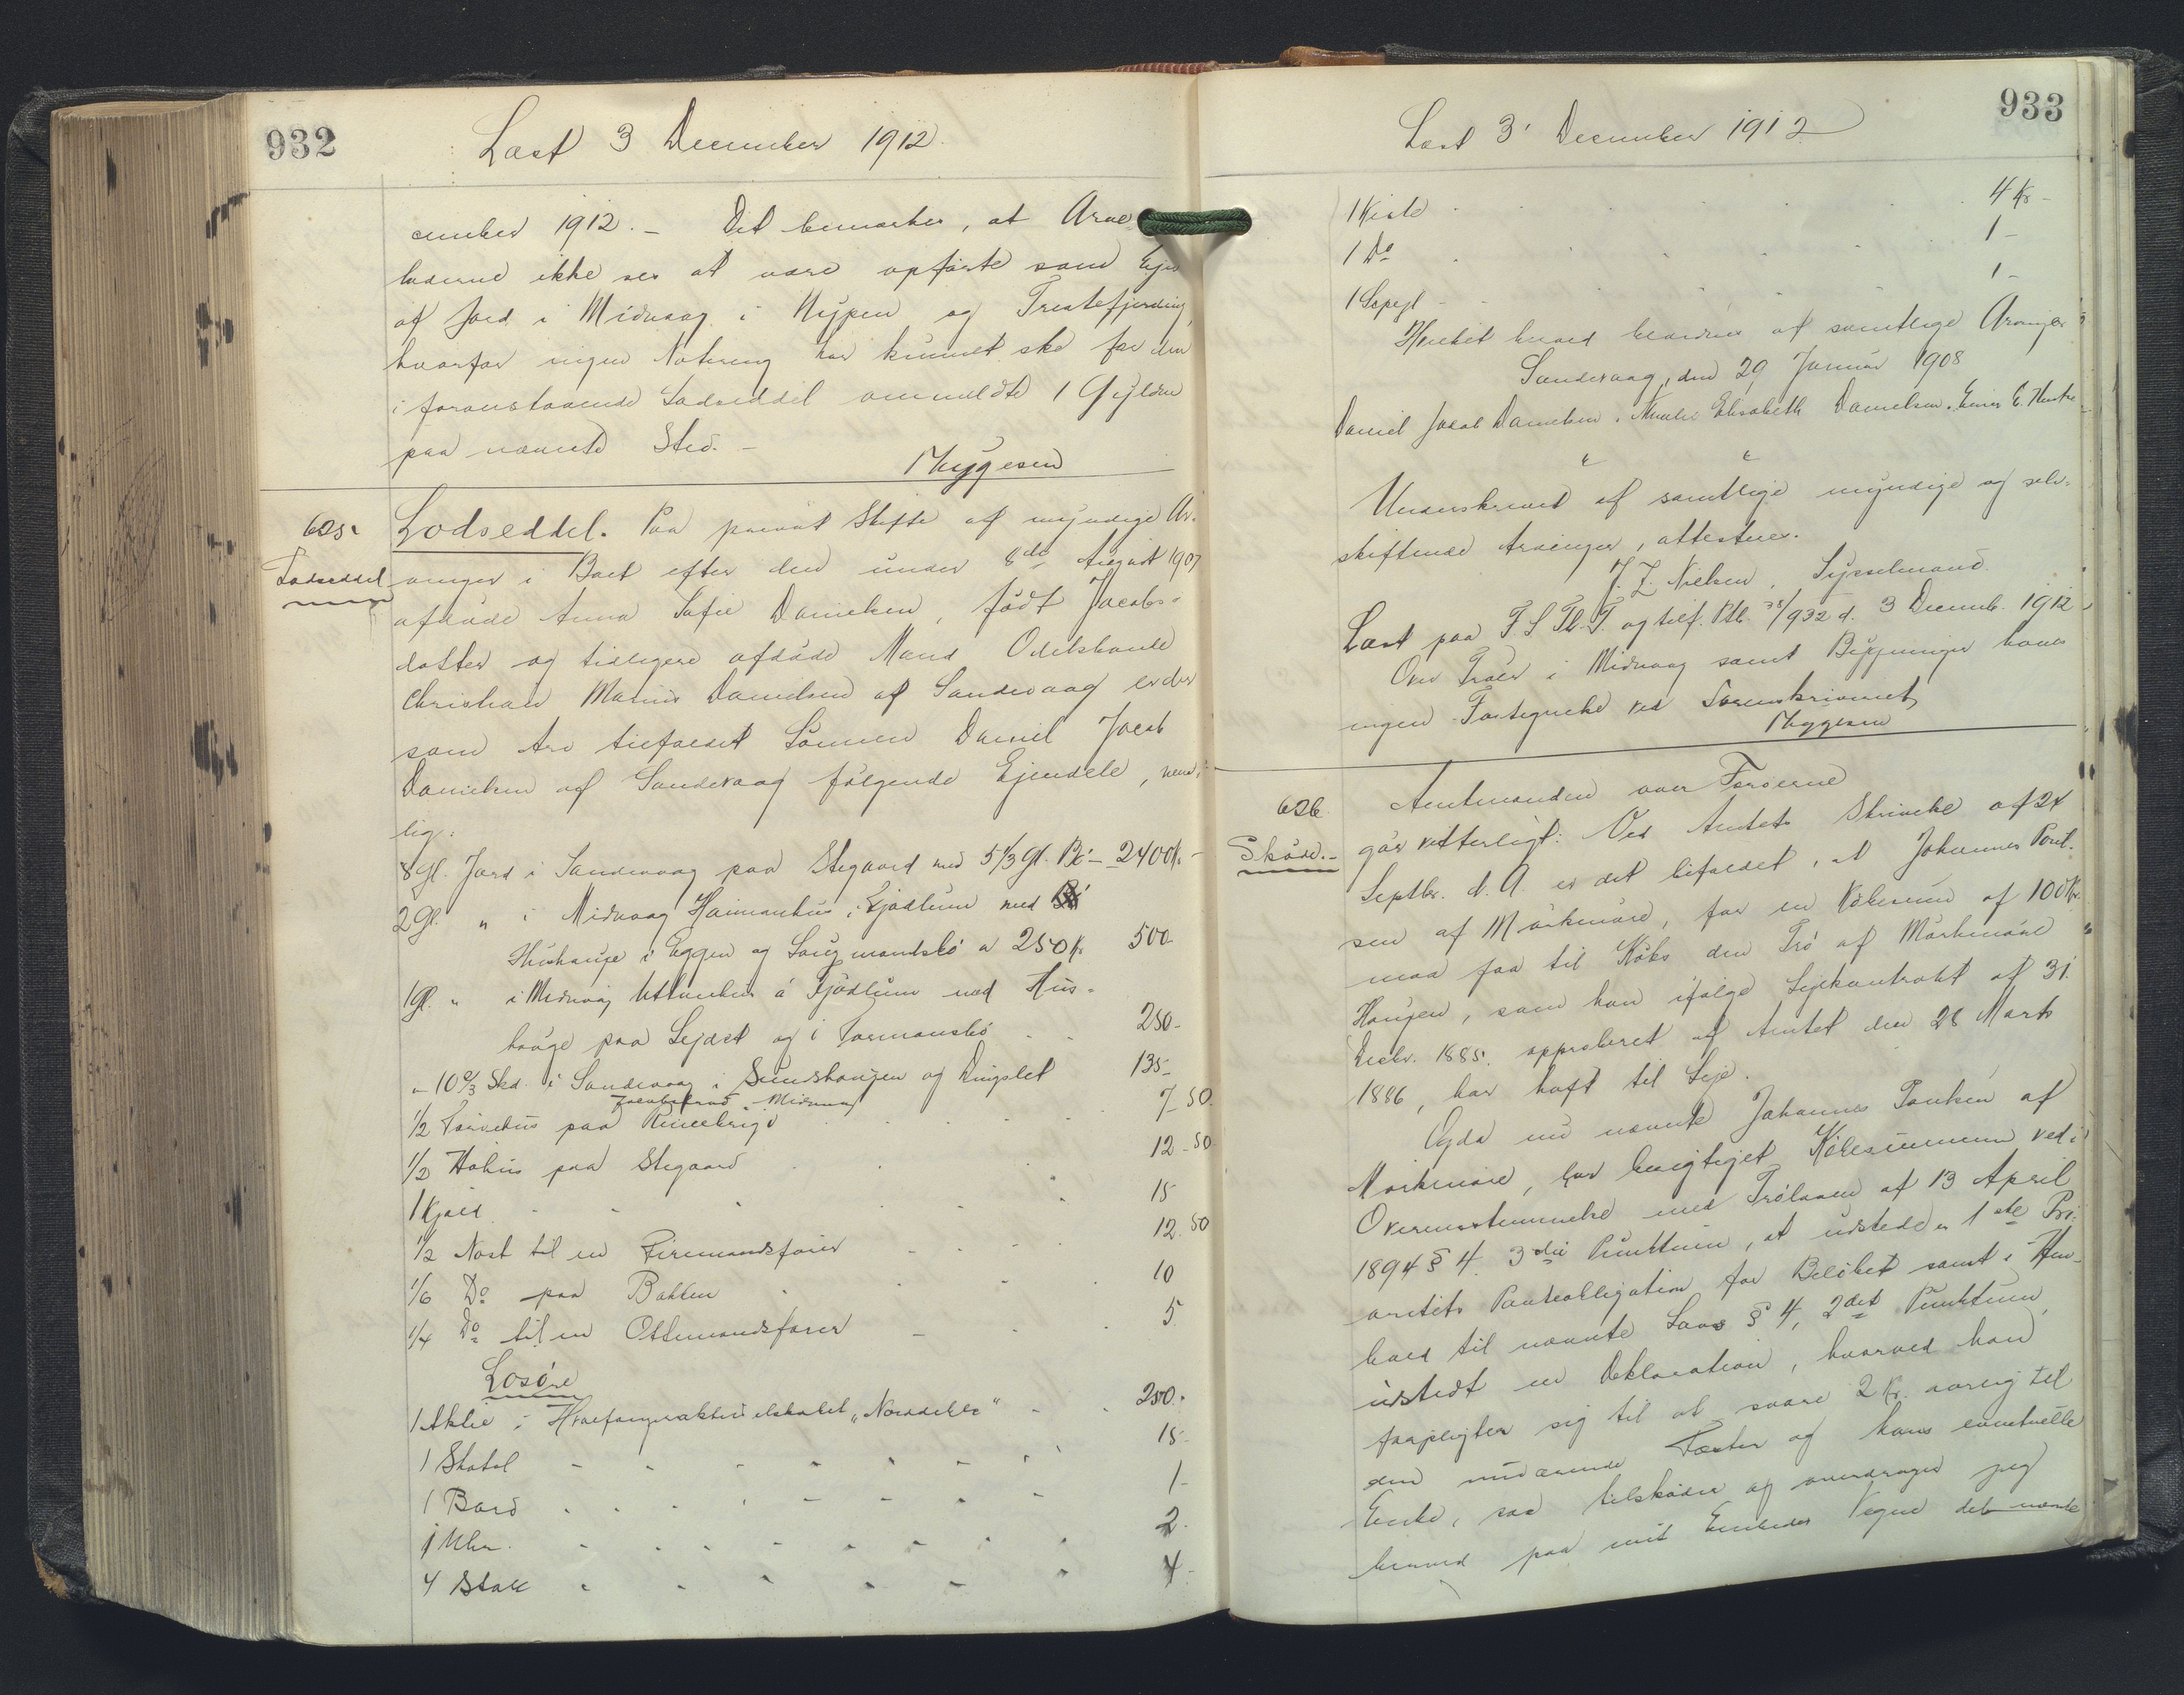 932
Læst 3 December 1912.
cember 1912. – Det bemærkes, at Arve
laderne ikke ses at være opførte som Ejer
af Jord i Midvaag i Nypen og Trestefjerding,
hvorfor ingen Notering har kunnet ske for den
i foranstaaende Lodseddel ommeldte 1 Gylden
paa nævnte Sted. –
Mygesen
625.
Lodseddel
Lodseddel. Paa privat Skifte af myndige Ar-
vinger i Boet efter den under 8de August 1907
afdøde Anna Sofie Danielsen, født Jacobs-
datter og tidligere afdøde Mand Odelsbonde
Christian Marius Danielsen af Sandevaag er der
som Arv tilfaldet Sønnen Daniel Jacob
Danielsen af Sandevaag følgende Ejendele, nem-
lig:
8 Gl. Jord i Sandevaag paa Stegaard med 5 1/3 Gl. Bø – 2400 Kr –
2 Gl. " i Midvaag Heimanhus, i Gjødlum med
Hushauge i Eggen og Saugmandsbø a 250 Kr 500-
1 Gl. " i Midvaag Uttanhus á Gjødlum med Hus-
hauge paa Lejdet og i Tormansbø 250-
- 10 2/3 Skd. i Sandevaag i Sundshaugen og Dingslet 135-
Jacobsstad Midvaag
1/2 Tørvehus paa 7-50
1/2 Høhus paa Stegaard 12-50
1 Kjæld 15
1/2 Nøst til en Firemandsfarer 12.50
1/6 Do paa Bakken 10
1/4 Do til en Ottemandsfarer 5
Løsøre
1 Aktie i Hvalfangeraktieselskabet "Norddeble" 250.
1 Skatol 15-
1 Bord 1-
1 Uhr. 2-
4 Stole 4-
933
Læst 3' December 1912
1 Kiste 4 Kr –
1 Do 1 –
1 Spejl 1 –
Hvilket herved erkendes af samtlige Arvinger
Sandevaag, den 29 Januar 1908
Daniel Jacob Danielsen. Elisabeth Danielsen.
Underskrevet af samtlige myndige og selv-
skiftende Arvinger, attesteres.
J. Z. Nielsen, Sysselmand.
Læst paa F. S. Tb. T. og tilf. Ptb. /932 d. 3 Decemb. 1912
Over Trøer i Midvaag samt Bygninger haves
ingen Fortegnelse ved Sorenskriveriet
Myggesen
626
Skøde. –
Amtmanden over Færøerne
gør vitterligt: Ved Amtets Skrivelse af 24
Septbr. d. A. er det bifaldet, at Johannes Poul-
sen af Mørkenøre, for en Købesum af 100 Kr.
maa faa til Købs den Trø af Mørkenøre
Haugen, som han ifølge Lejekontrakt af 31.
Decbr. 1885. approberet af Amtet den 28 Marts
1886, har haft til Leje.
Og da nu nævnte Johannes Poulsen af
Mørkenøre, har berigtiget Købesummen ved i
Overensstemmelse med Trøloven af 13 April
1894 § 4. 3die Punktum, at udstede 1ste Pri-
oritets Panteobligation for Beløbet samt i Hen-
hold til nævnte Lovs § 4, 2det Punktum,
udstedt en Deklaration, hvorved han
forpligter sig til at svare 2 Kr. aarlig til
den nuværende Fæster og hans eventuelle
Enke, saa tilskøder og overdrager jeg
herved paa mit Embedes Vegne det nævnte